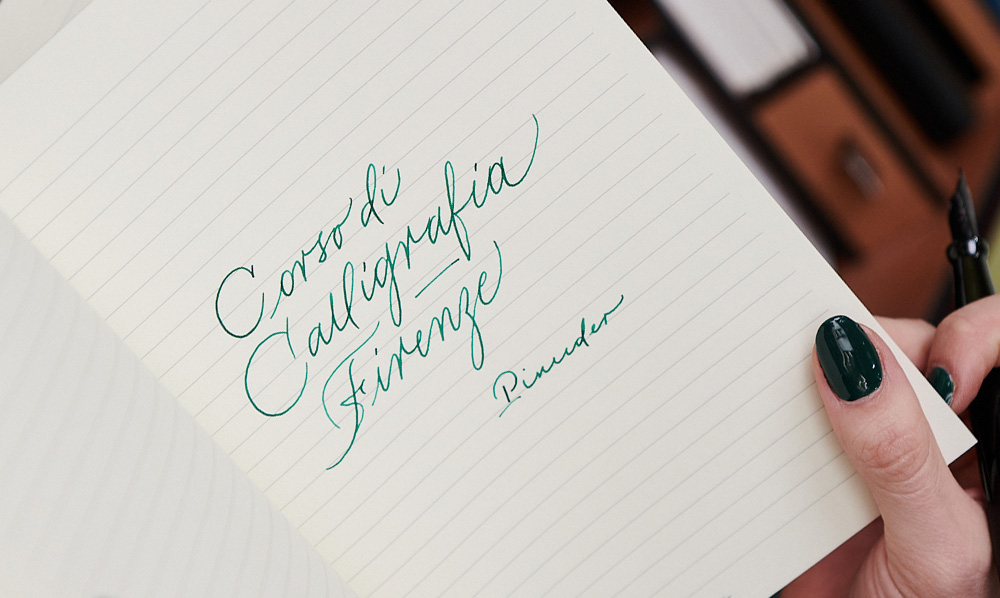 Corso di
Calligrafia
—
Firenze
Pineider